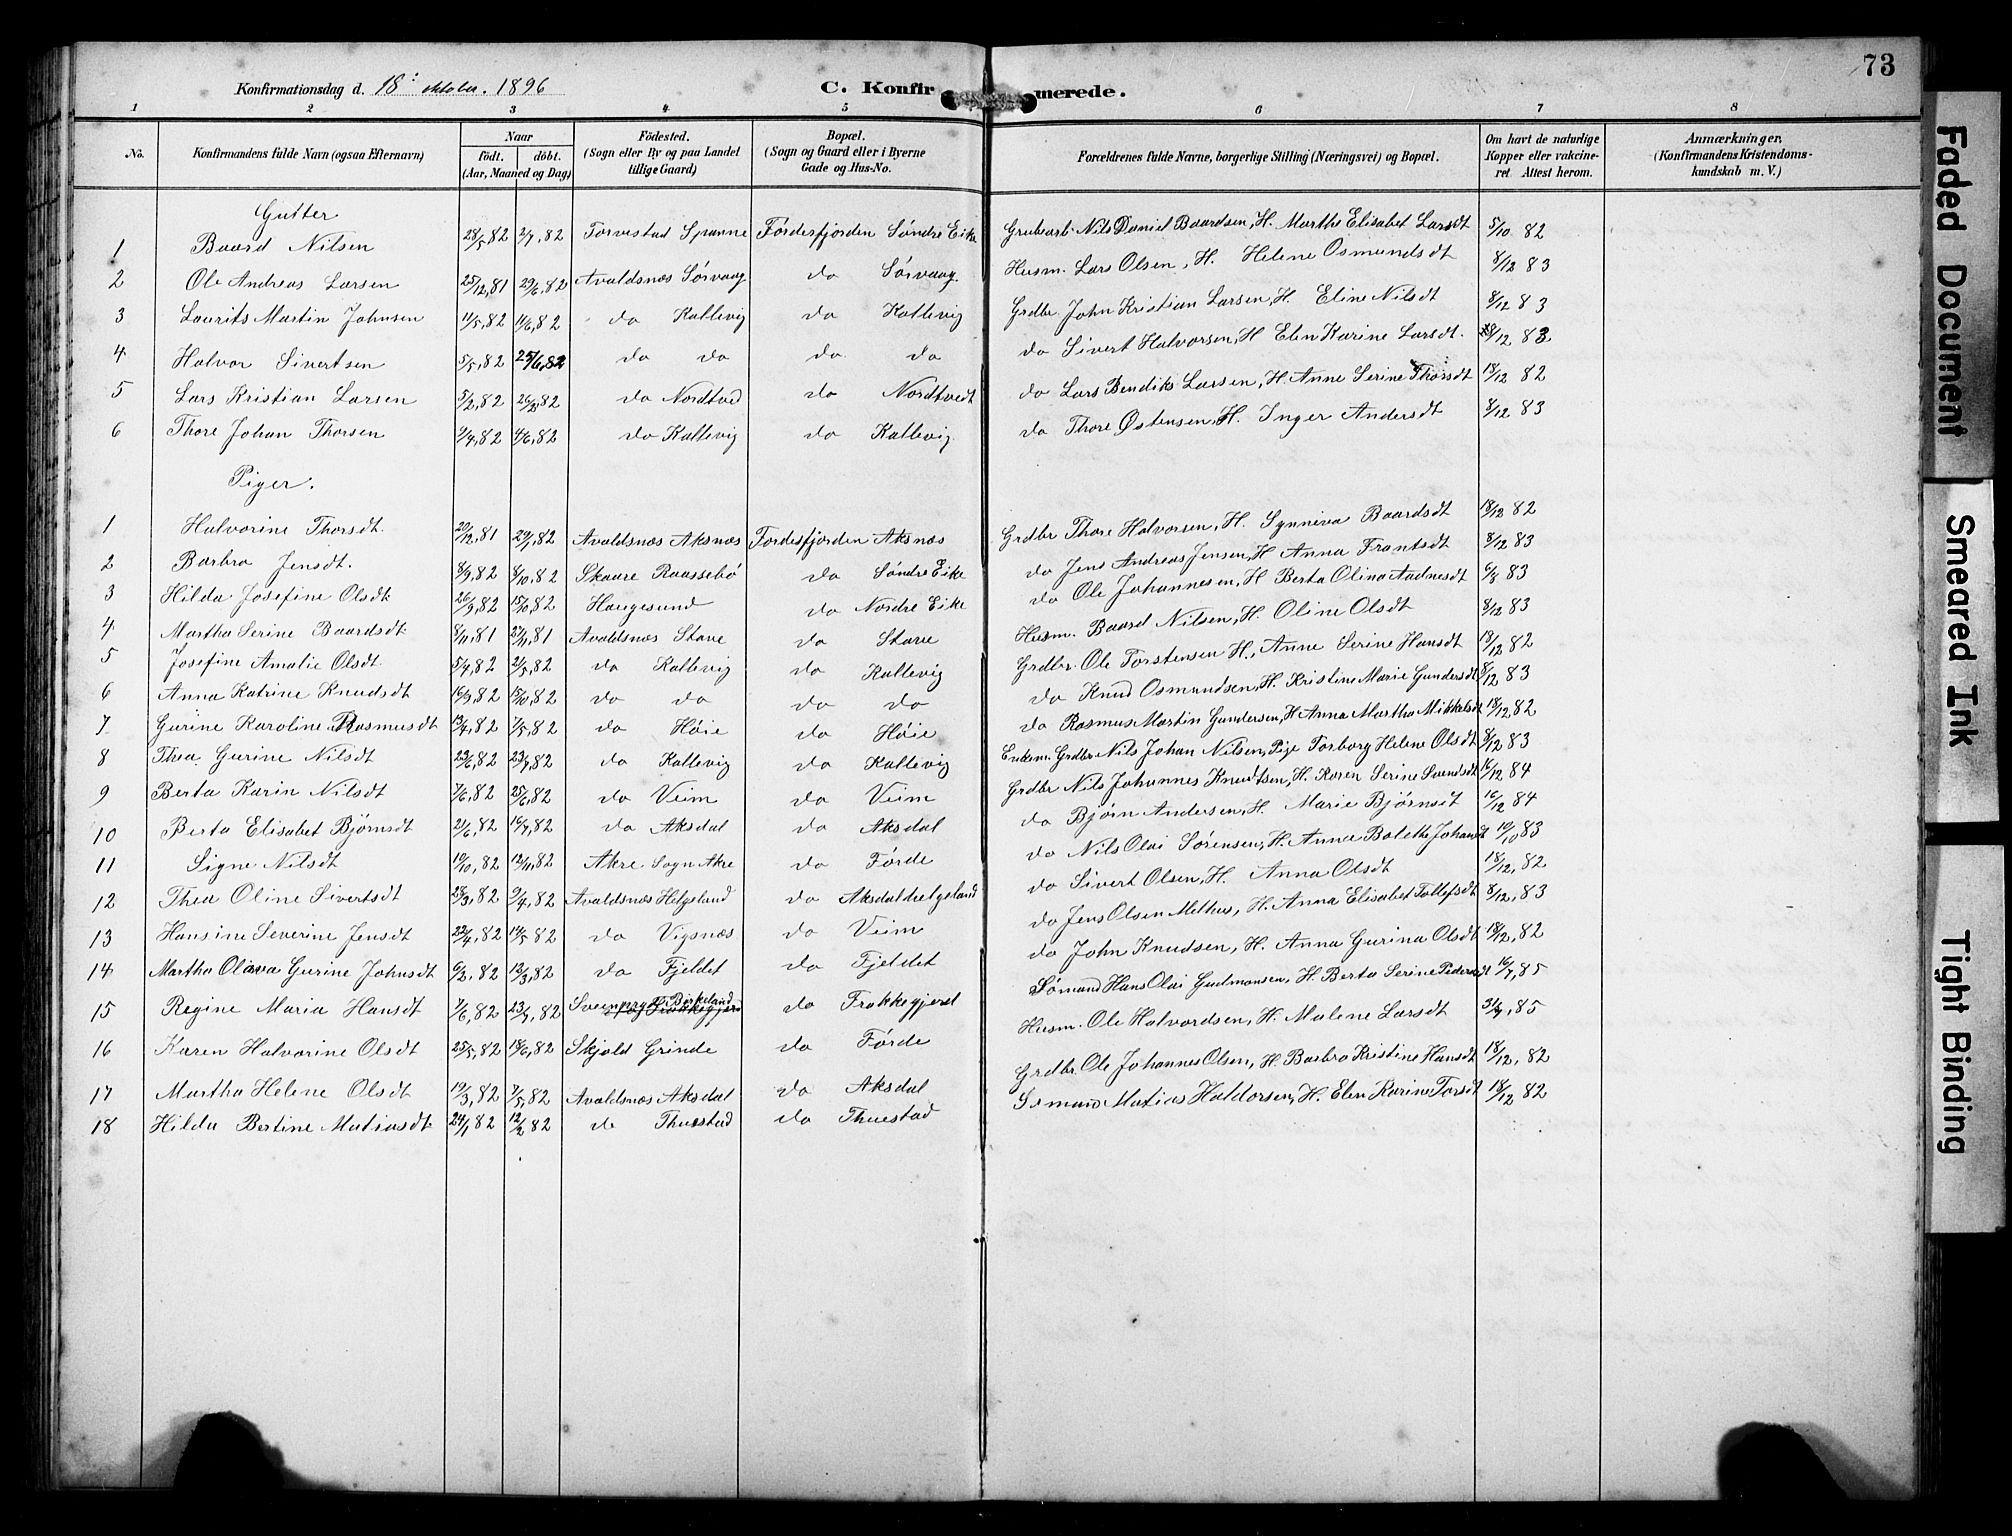 73
Konfirmationsdag d. 18: oktober. 1896
C. Konfirmerede.
1 2 3 4 5 6 7 8
No. Konfirmandens fulde Navn (ogsaa Efternavn) Naar födt. döbt. (Aar, Maaned og Dag) Födested. (Sogn eller By og paa Landet tillige Gaard) Bopæl. (Sogn og Gaard eller i Byerne Gade og Hus-No. Forældrenes fulde Navne, borgerlige Stilling (Næringsvei) og Bopæl. Om havt de naturlige Kopper eller vakcineret. Attest herom. Anmærkninger. (Konfirmandens Kristendomskundskab m. V.)
Gutter
1 Baard Nilsen 28/5 82 2/7, 82 Torvestad Spanne Fördesfjorden Søndre Eike Grubearb. Nils Daniel Baardsen, H. Marthe Elisabet Larsdt 5/10 82
2 Ole Andreas Larsen 25/12, 81 29/6, 82 Avaldsnæs Sørvaag do Sørvaag. Husm. Lars Olsen, H. Helene Osmundsdt 8/12 83
3 Laurits Martin Johnsen 11/5, 82 11/6, 82 do Kallevig do Kallevig Grdbr John Kristian Larsen, H. Eline Nilsdt 8/12 83
4 Halvor Sivertsen 5/5, 82 25/6, 82 do do do do do Sivert Halvorsen, H Elen Karine Larsdt. 8/12 83
5 Lars Kristian Larsen 5/2, 82 26/2, 82 do Nordtved do Nordtvedt do Lars Bendik Larsen, H. Anne Serine Thorsdt 18/12 82
6 Thore Johan Thorsen 9/4, 82 4/6, 82 do Kallevig do Kallevig. do Thore Østensen, H. Inger Andersdt 8/12 83
Piger.
1 Halvorine Thorsdt. 20/12, 81 29/1, 82 Avaldsnæs Aksnæs Fördesfjorden Aksnæs Grdbr Thore Halvorsen, H. Synniva Baardsdt 18/12 82
2 Barbro Jensdt. 8/9, 82 8/10, 82 Skaare Raassebö do Søndre Eike do Jens Andreas Jensen, H Anna Frantsdt 8/12 83
3 Hilda Josefine Olsdt 26/9, 82 15/10, 82 Haugesund do Nordre Eike do Ole Johannesen, H Berta Olina Aadnesdt 6/8 83
4 Martha Serine Baardsdt. 8/11, 81 27/11, 81 Avaldsnæs Stave do Stave Husm. Baard Nilsen, H. Oline Olsdt 8/12 83
5 Josefine Amalie Olsdt. 5/4, 82 21/5, 82 do Kallevig do Kallevig Grdbr. Ole Torstensen H, Anne Serine Hansdt 18/12 82
6 Anna Katrine Knudsdt 16/9, 82 15/10, 82 do do do do do Knud Osmundsen, H. Kristine Marie Gundersdt 8/12 83
7 Gurine Karoline Rasmusdt 13/4, 82 7/5, 82 do Høie do Høie do Rasmus Martin Gundersen, H Anna Martha Mikkelsdt 18/12 82
8 Thea Gurine Nilsdt 22/6, 82 23/7, 82 do Kallevig do Kallevig Enkem. Grdbr Nils Johan Nilsen, Pige Torborg Helene Olsdt 8/12 83
9 Berta Karin Nilsdt 7/6, 82 25/6, 82 do Veim do Veim Grdbr Nils Johannes Knudtsen, H. Karen Serine Svendsdt 16/12 84
10 Berta Elisabet Björnsdt 21/6, 82 16/7, 82 do Aksdal do Aksdal do Björn Andersen, H. Marie Bjørnsdt 16/12 84
11 Signe Nilsdt 10/10, 82 12/11, 82 Akre Sogn Akre do Førde do Nils Olai Sørensen, H. Anna Bolette Johansdt 10/10 83
12 Thea Oline Sivertsdt 28/3, 82 9/4, 82 Avaldsnæs Helgeland do Aksdal Helgeland do Sivert Olsen, H. Anna Olsdt 18/12, 82
13 Hansine Severine Jensdt 22/4, 82 14/5 82 do Vigsnæs do Veim do Jens Olsen Melhus, H. Anna Elisabet Tollefsdt 8/12, 83
14 Martha Olava Gurine Johnsdt 6/2, 82 12/3, 82 do Fjeldet do Fjeldet do John Knudsen, H. Anna Gurina Olsdt 18/12, 82
15 Regine Maria Hansdt 7/6, 82 23/7, 82 Birkeland do Frakkegjerd Sømand Hans Olai Gudmansen, H. Berta Serine Pedersdt 16/7, 85
16 Karen Halvorine Olsdt 25/5, 82 18/6, 82 Skjold Grinde do Førde Husm. Ole Halvordsen, H. Malene Larsdt 85
17 Martha Helene Olsdt 19/3, 82 7/5, 82 Avaldsnæs Aksdal do Aksdal Grdbr. Ole Johannes Olsen, H. Barbro Kristine Hansdt 18/12, 82
18 Hilda Bertine Matiasdt. 24/1 82 12/2 82 do Thuestad do Thuestad Sømand Matias Haldorsen, H. Elen Karine Torsdt 18/12 82
Faded Document
Smeared Ink
Tight Binding